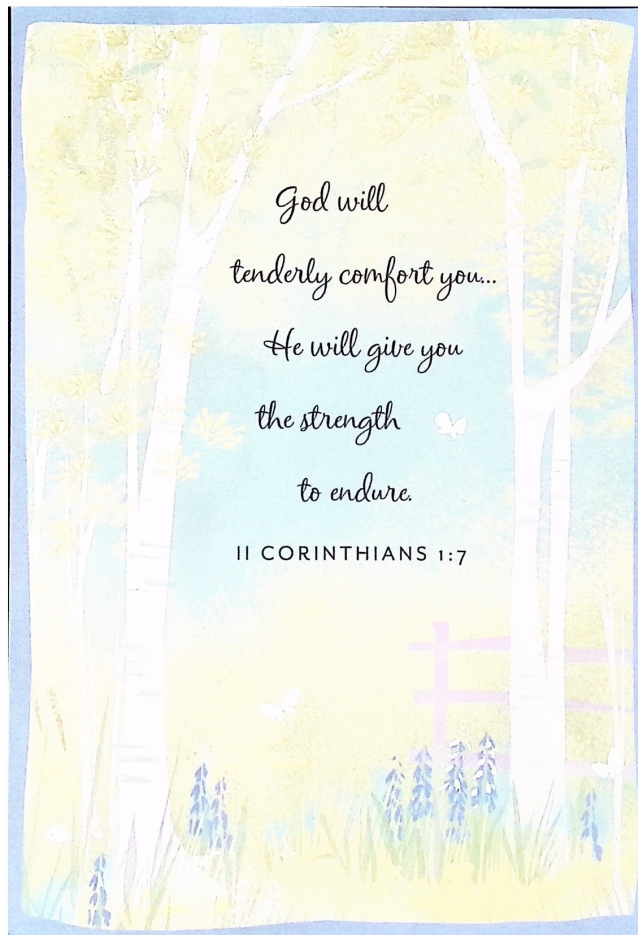 God will
tenderly comfort you...
He will give you
the strength
to endure.
II CORINTHIANS 1:7